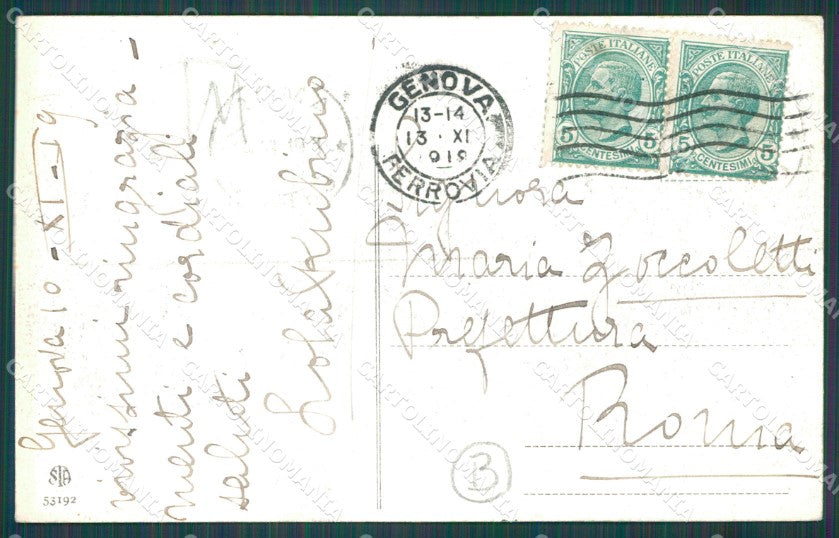 Genova 10-XI-19
vivissimi ringrazia-
menti e cordiali
saluti
Lola Rubino
GENOVA
13-14
13 XI
919
FERROVIA
POSTE ITALIANE
5 CENTESIMI 5
POSTE ITALIANE
5 CENTESIMI 5
Signora
Maria Zoccoletti
Prefettura
Roma
3
STA
53192
CARTOLINOMANIA